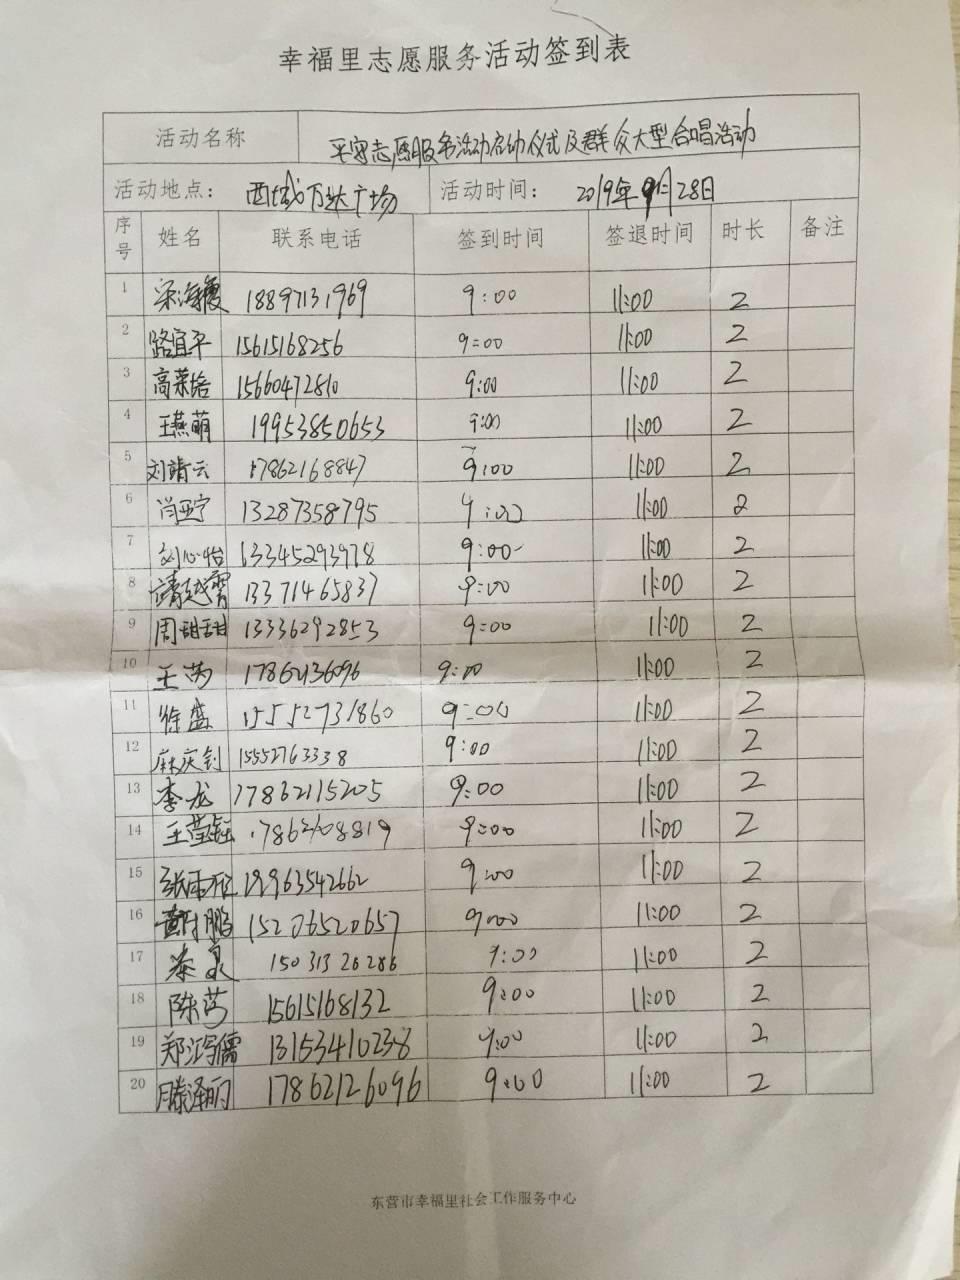 幸福里志愿服务活动签到表
活动名称 平安志愿服务活动启动仪式及群众大型合唱活动
活动地点: 西城万达广场 活动时间: 2019年9月28日
序号 姓名 联系电话 签到时间 签退时间 时长 备注
1 梁海霞 18897131969 9:00 11:00 2
2 路宜平 15615168256 9:00 11:00 2
3 高荣培 15660472810 9:00 11:00 2
4 王燕萌 19953850653 9:00 11:00 2
5 刘靖云 17862168847 9:00 11:00 2
6 肖亚宁 13287358795 9:00 11:00 2
7 刘心怡 13345293978 9:00 11:00 2
8 13371465837 9:00 11:00 2
9 周甜甜 13336292853 9:00 11:00 2
10 王 17862136096 9:00 11:00 2
11 徐盛 15552731860 9:00 11:00 2
12 麻庆钊 15552763338 9:00 11:00 2
13 李龙 17862115205 9:00 11:00 2
14 王莹钰 17862108819 9:00 11:00 2
15 9:00 11:00 2
16 黄时鹏 15206520657 9:00 11:00 2
17 秦泉 15031326286 9:00 11:00 2
18 陈芳 15615168132 9:00 11:00 2
19 郑鸿儒 13153410238 9:00 11:00 2
20 滕泽丽 17862126096 9:00 11:00 2
东营市幸福里社会工作服务中心